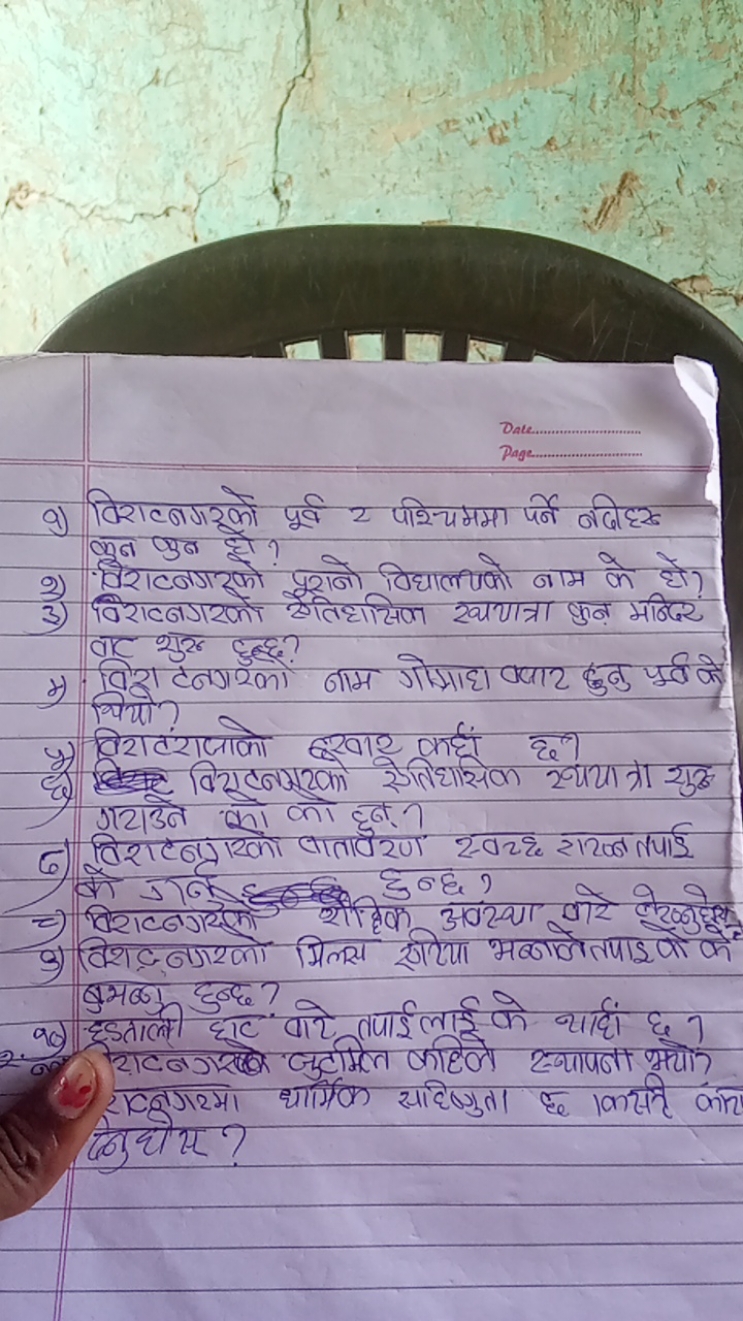 Date
Page
१) विराटनगरको पूर्व र पश्चिममा पर्ने नदीहरू
कुन कुन हो ?
२) विराटनगरको पूरानो विद्यालयको नाम के हो?
३) विराटनगरको ऐतिहासिक रथयात्रा कुन मन्दिर
बाट शुरू हुन्छ?
४) विराटनगरको नाम गोग्राहा बजार हुनु पूर्व के
थियो?
५) विराटराजाको दरवार कहाँ छ?
६) विराटनगरको ऐतिहासिक रथयात्रा शुरू
गराउने को को हुन् ?
विराटनगरको वातावरण स्वच्छ राख्न तपाई
के गर्नु हुन्छ ?
विराटनगरको शैक्षिक अवस्था बारे
विराटनगरको मिल्स एरिया भन्नाले तपाइ के
बुझ्नु हुन्छ ?
१०) हाट बारे तपाईलाई के थाहाँ छ ?
जुटमिल कहिले स्थापना भयो?
धार्मिक सहिष्णुता छ कसरी
दिनुहोस ?